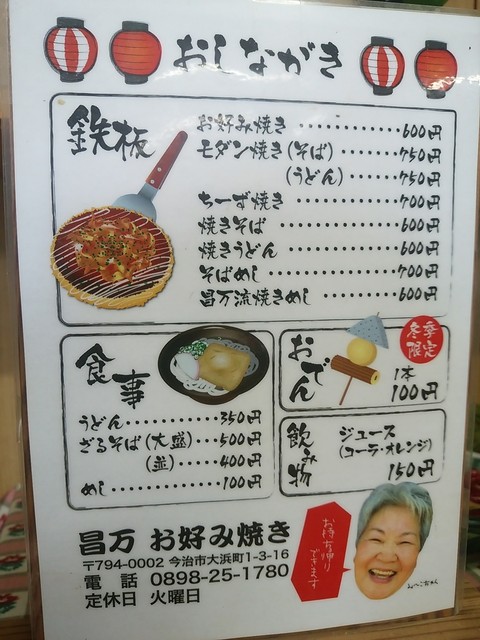 おしながき
鉄板
お好み焼き ・・・・・・・・・・ 600円
モダン焼き(そば) ・・・・・・ 750円
(うどん) ・・・・・・ 750円
ちーず焼き ・・・・・・・・・・ 700円
焼きそば ・・・・・・・・・・・・ 600円
焼きうどん ・・・・・・・・・・ 600円
そばめし ・・・・・・・・・・・・ 700円
昌万流焼きめし ・・・・・・・・ 600円
食事
うどん ・・・・・・・・・・ 350円
ざるそば(大盛) ・・・・・ 500円
(並) ・・・・・ 400円
めし ・・・・・・・・・・・・ 100円
おでん
冬季
限定
1本
100円
飲み物
ジュース
(コーラ・オレンジ)
150円
昌万 お好み焼き
〒794-0002 今治市大浜町1-3-16
電話 0898-25-1780
定休日 火曜日
お持ち帰り
できます